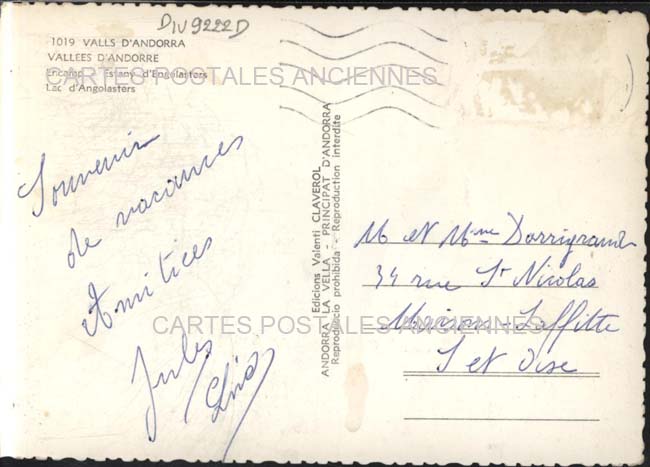 DIV9222D
1019 VALLS D'ANDORRA
VALLEES D'ANDORRE
Encamp - Estany d'Engolasters
Lac d'Angolasters
CARTES POSTALES ANCIENNES
Souvenir
de vacances
Amitiées
Jules
Edicions Valenti CLAVEROL
ANDORRA LA VELLA - PRINCIPAT D'ANDORRA
Reproducció prohibida - Reproduction interdite
M et Mme
34 rue St Nicolas
Maisons-Laffitte
S et Oise
CARTES POSTALES ANCIENNES